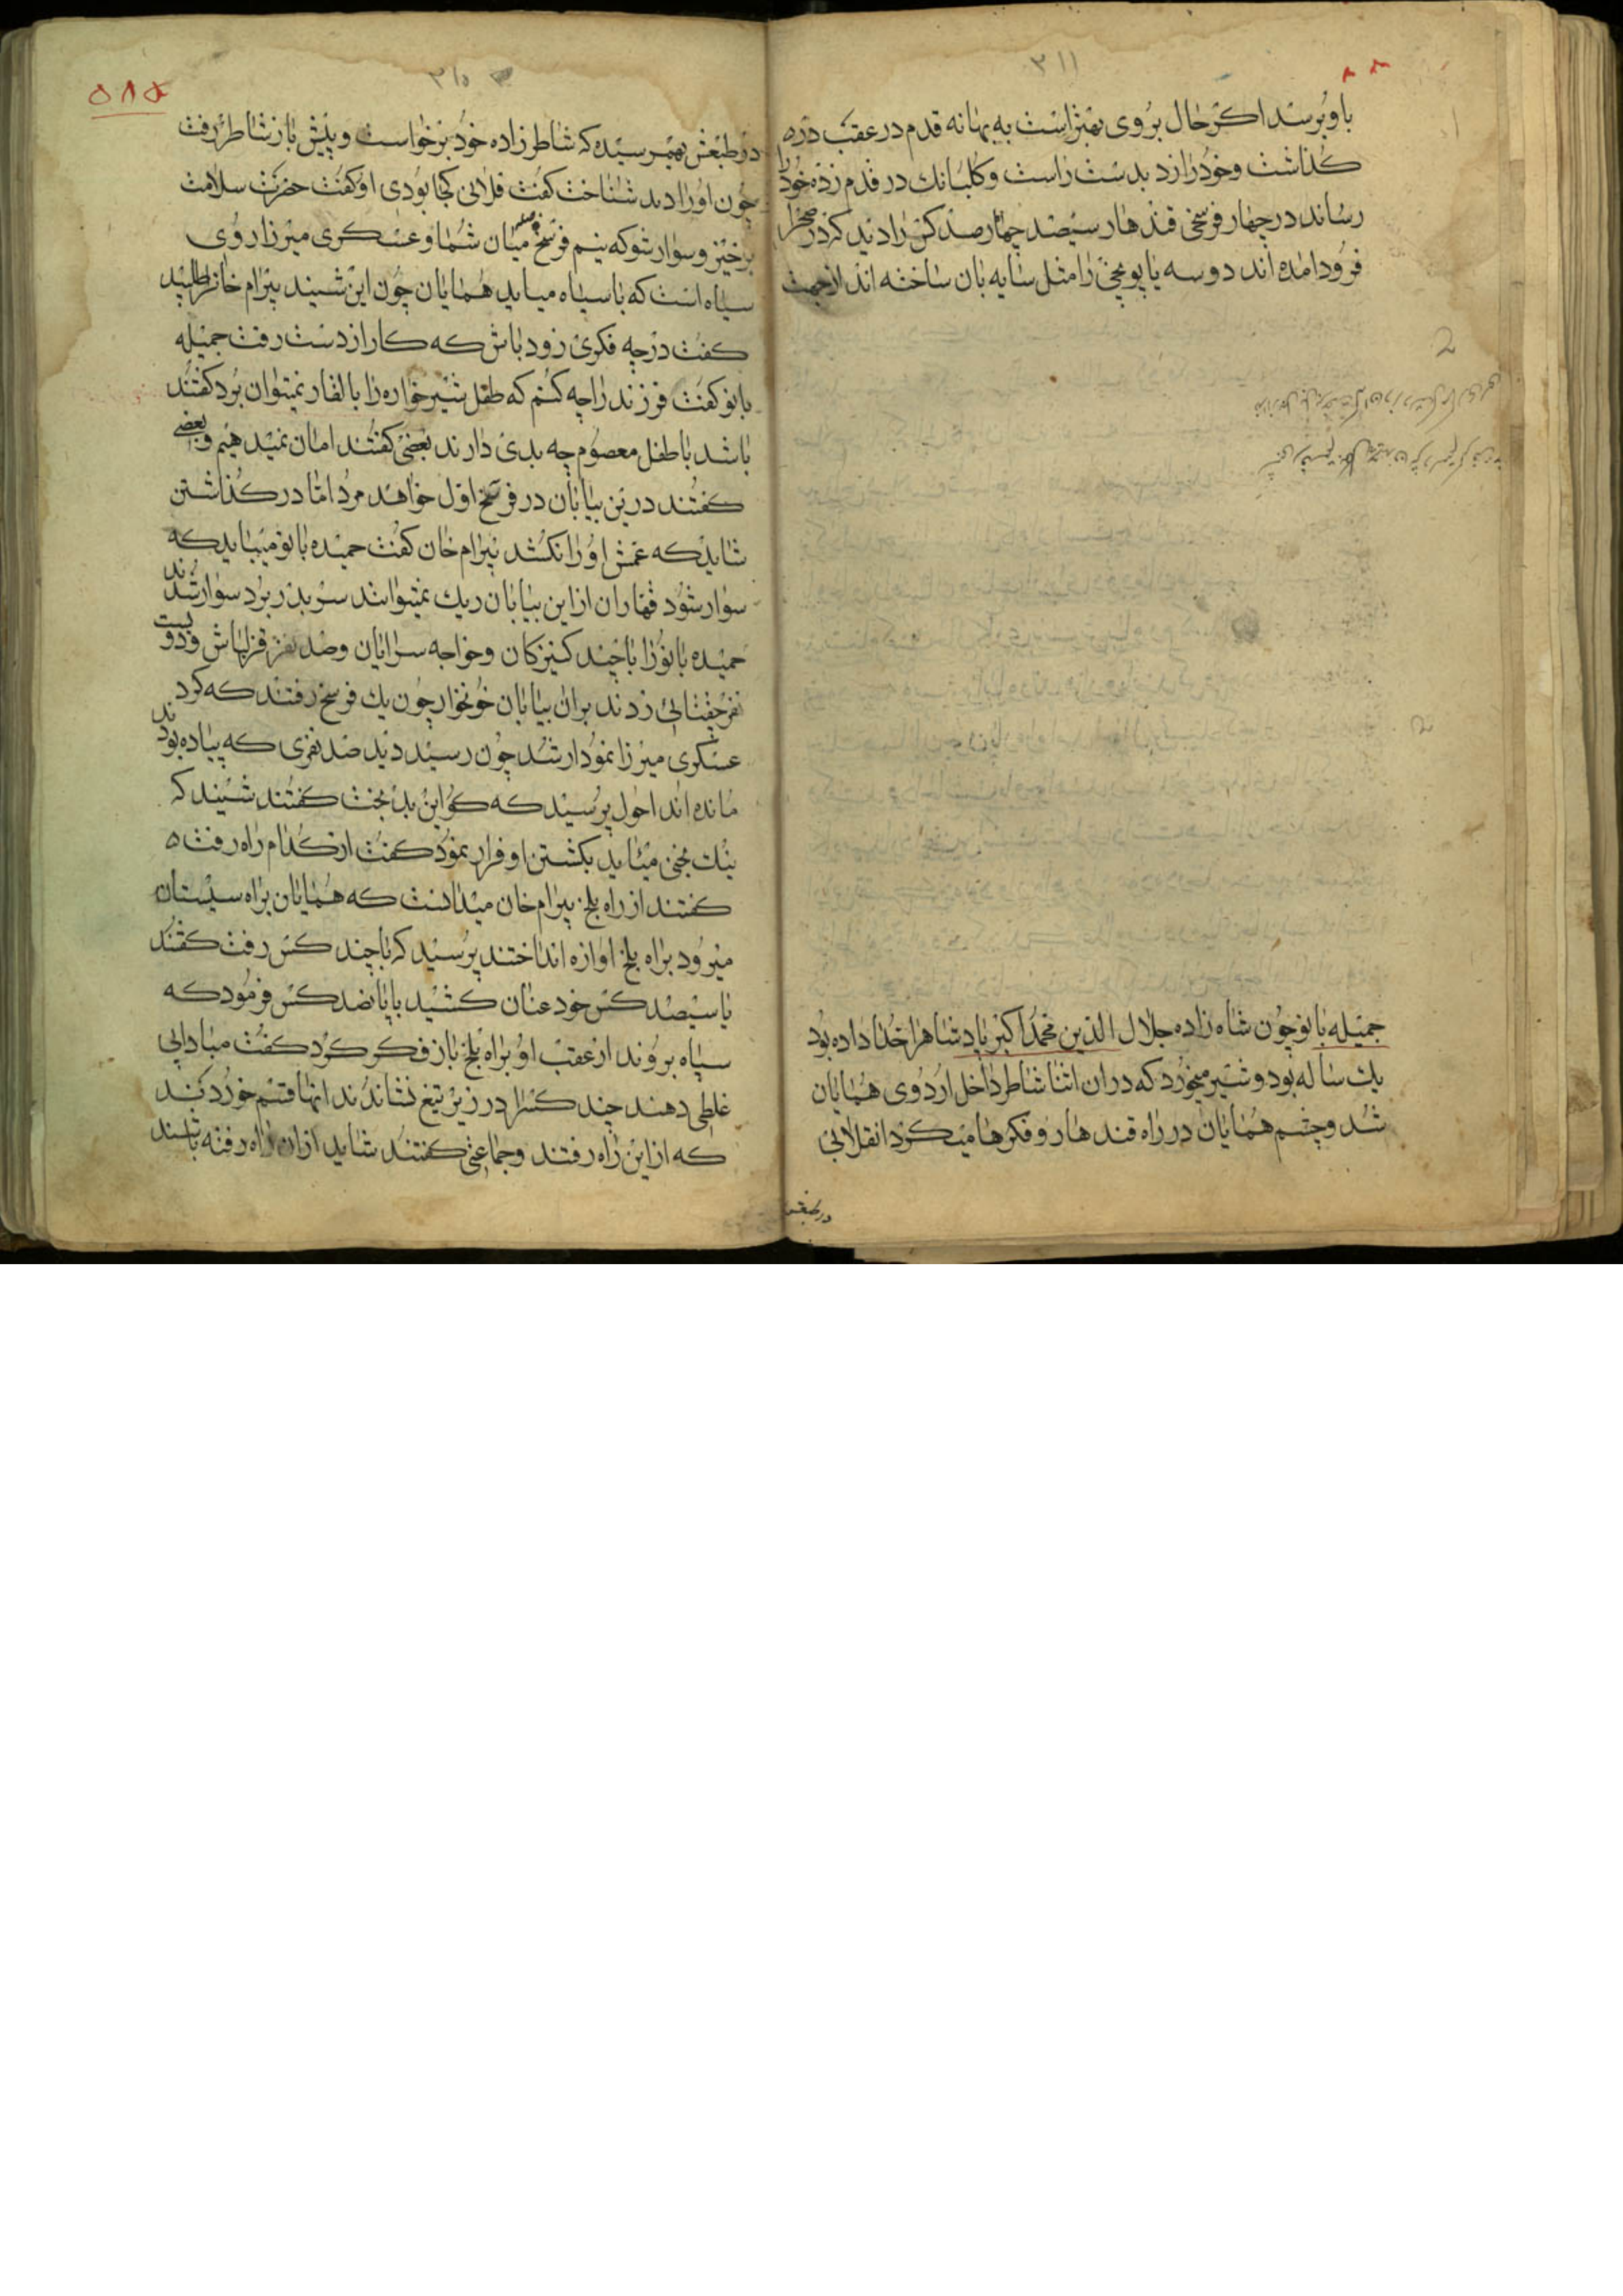 ۳۱۱
باو برسد اکر حال بروی بهتر است به بهانه قدم در عقب دره
کذاشت وخود را زد بدست راست و کلبانک در قدم زده خود را
رساند در چهار فرسخی قندهار سیصد چهار صد کس را دید که در صحرا
فرود امده اند دو سه پاپونچی را مثل سایه بان ساخته اند از جهت
جمیله بانو چون شاه زاده جلال الدین محمد اکبر پادشاهرا خدا داده بود
یک ساله بود و شیر میخورد که دران اثنا شاطر داخل اردوی همایان
شد و چشم همایان در راه قندهار و فکرها میکرد انقلابی
در طبعش
۳۱۵
۵۸۵
در طبعش بهم رسیده که شاطر زاده خود برخواست و پیش باز شاطر رفت
چون او را دید شناخت کفت فلانی کجا بودی او کفت حضرت سلامت
برخیز و سوار شو که نیم فرسخ میان شما و عسکری میرزا روی
سیاه است که با سپاه میاید همایان چون این شنید بیرام خانرا طلبید
کفت در چه فکری زود باش که کار از دست رفت جمیله
بانو کفت فرزند را چه کنم که طفل شیر خواره را بالغار نمیتوان برد کفتند
باشد با طفل معصوم چه بدی دارند بعضی کفتند امان نمیدهیم و بعضی
کفتند درین بیابان در فرسخ اول خواهد مرد اما در کذاشتن
شاید که عمش او را نکشد بیرام خان کفت حمیده بانو میباید که
سوار شود قهاران از این بیابان ریک نمیتوانند سر بدر برد سوار شدند
حمیده بانو را با چند کنیزکان و خواجه سرایان و صد نفر قزلباش و دویست
نفر چغتائی زدند بران بیابان خونخوار چون یک فرسخ رفتند که کرد
عسکری میرزا نمودار شد چون رسید دید صد نفری که پیاده بودند
مانده اند احول پرسید که کو این بد بخت کفتند شنید که
نیک بختی میاید بکشتن او فرار نمود کفت از کدام راه رفت ه
کفتند از راه بلخ بیرام خان میدانست که همایان براه سیستان
میرود براه بلخ اوازه انداختند پرسید که با چند کس رفت کفتند
با سیصد کس خود عنان کشید با پانصد کس فرمود که
سپاه بروند از عقب او براه بلخ باز فکر کرد کفت مبادا پی
غلطی دهند چند کسرا در زیر تیغ نشاندند انها قسم خوردند
که از این راه رفتند و جماعتی کفتند شاید از ان راه رفته باشند